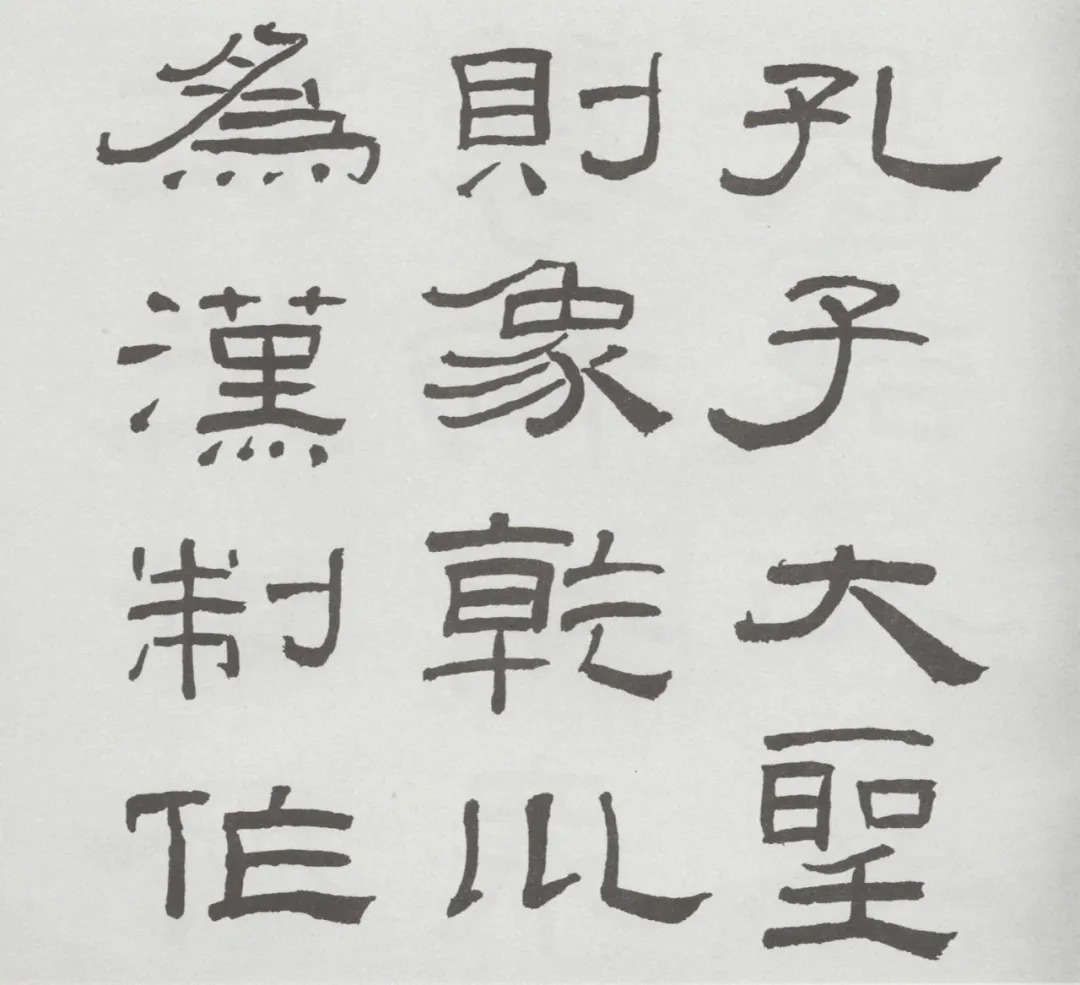 孔子大聖
則象乾坤
為漢制作